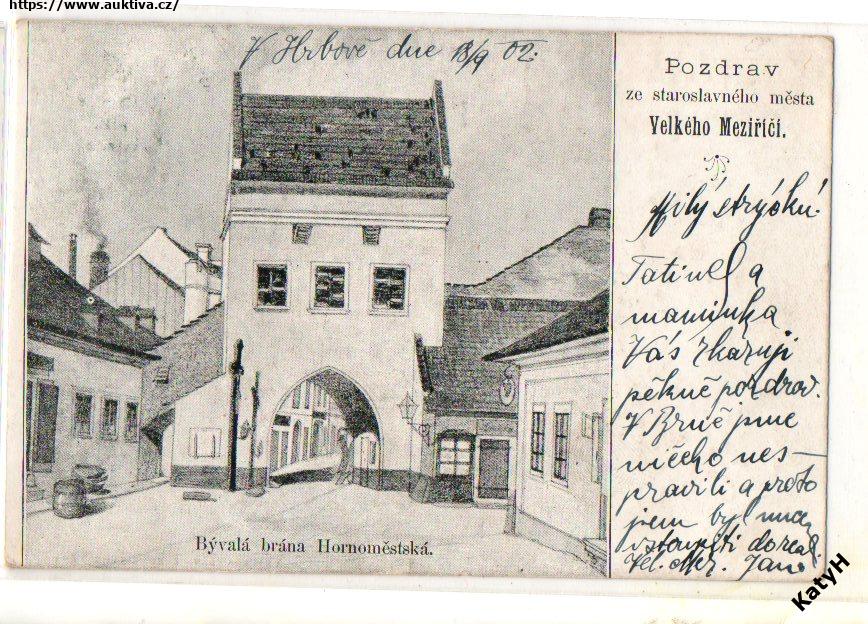 https://www.auktiva.cz/
V Hrbově dne 13/9 02.
Pozdrav
ze staroslavného města
Velkého Meziříčí.
Milý strýčku.
Tatínek a
maminka
Vás zkazují
pěkně pozdrav.
V Brně jsme
ničeho nes-
pravili a proto
jsem byl
vstoupiti do
Vel. Mez. Jano
Bývalá brána Hornoměstská.
KatyH